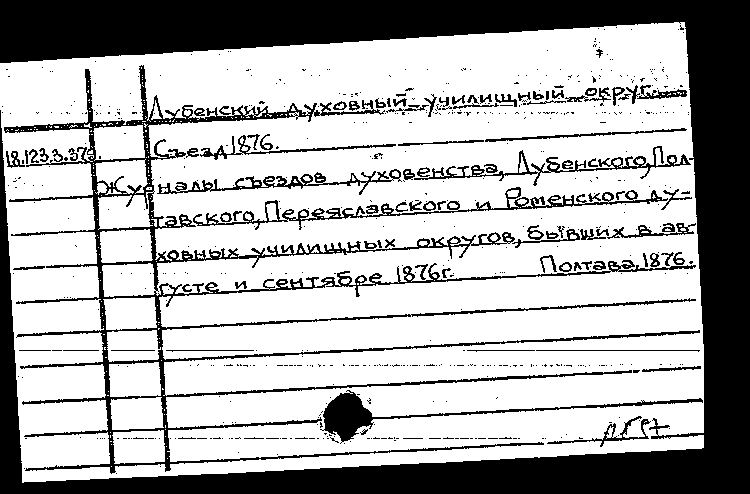 Лубенский духовный училищный округ.
18.123.3.373. Съезд 1876.
Журналы съездов духовенства, Лубенского, Пол-
тавского, Переяславского и Роменского ду-
ховных училищных округов, бывших в ав-
густе и сентябре 1876г. Полтава, 1876.